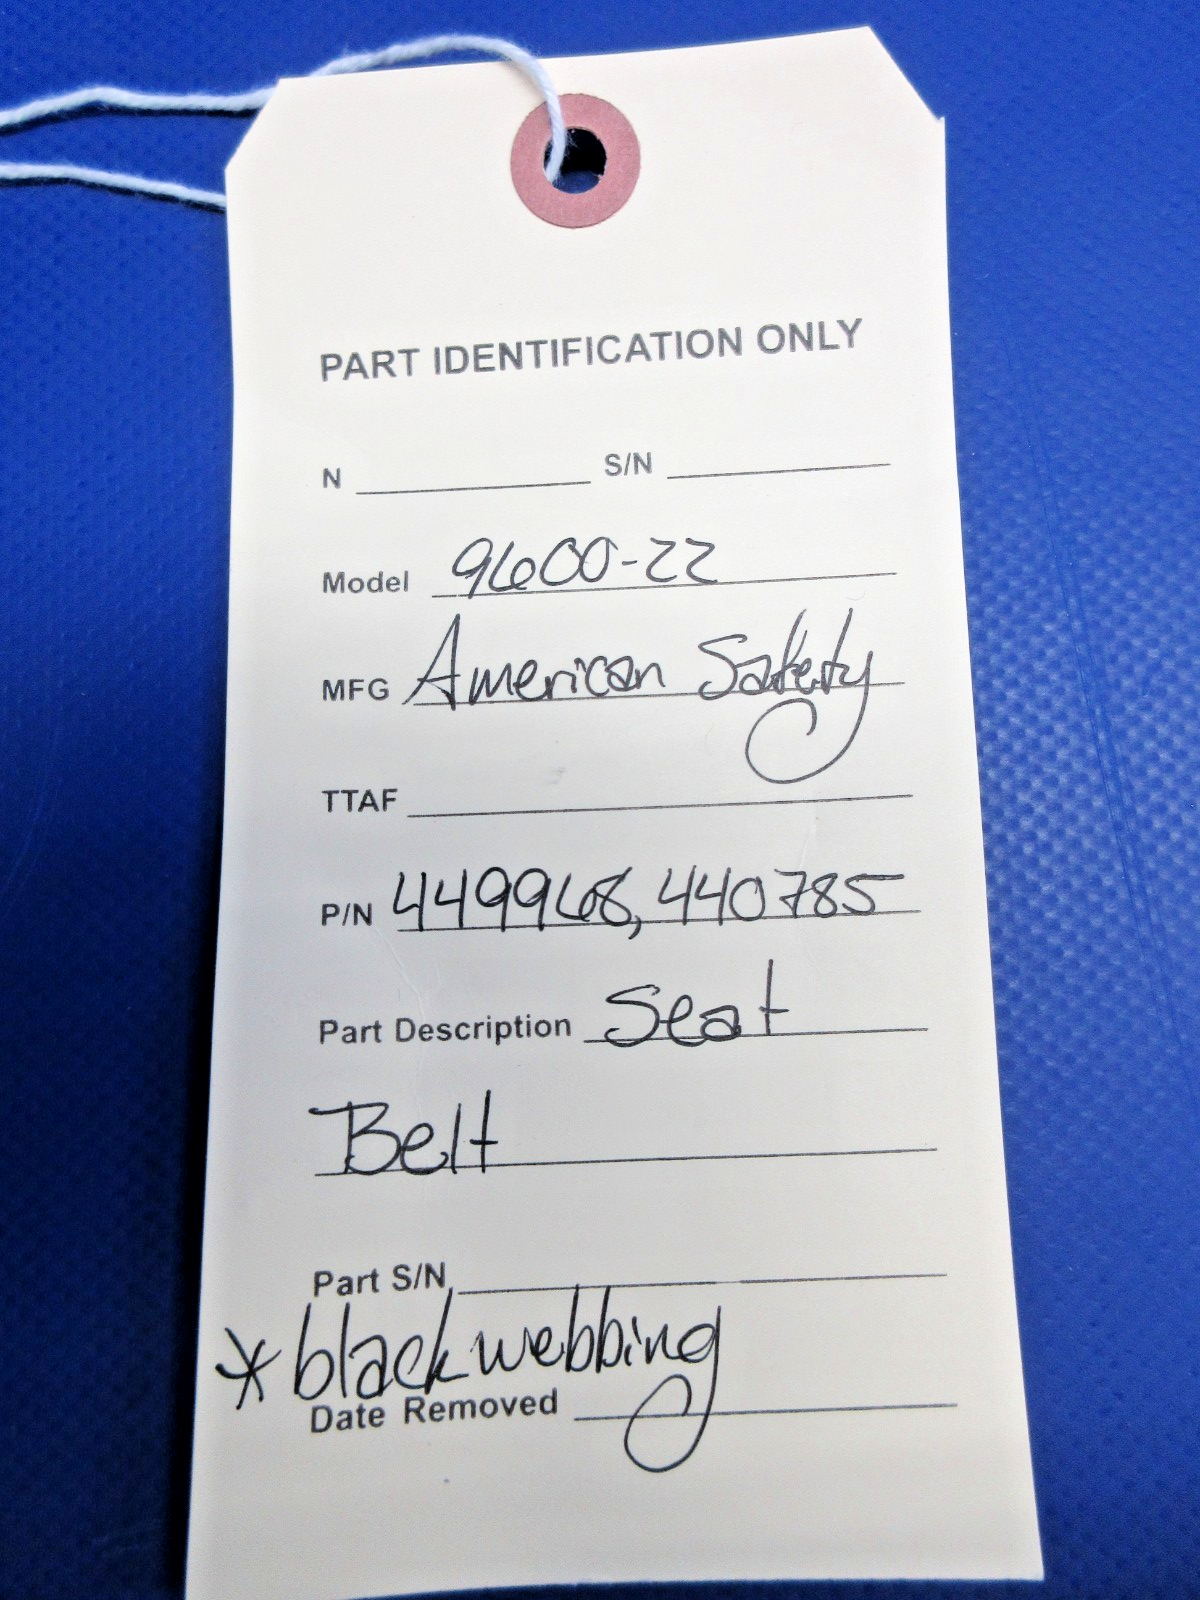 PART IDENTIFICATION ONLY
N S/N
Model 9600-22
MFG American Safety
TTAF
P/N 449968, 440785
Part Description Seat
Belt
Part S/N
*black webbing
Date Removed